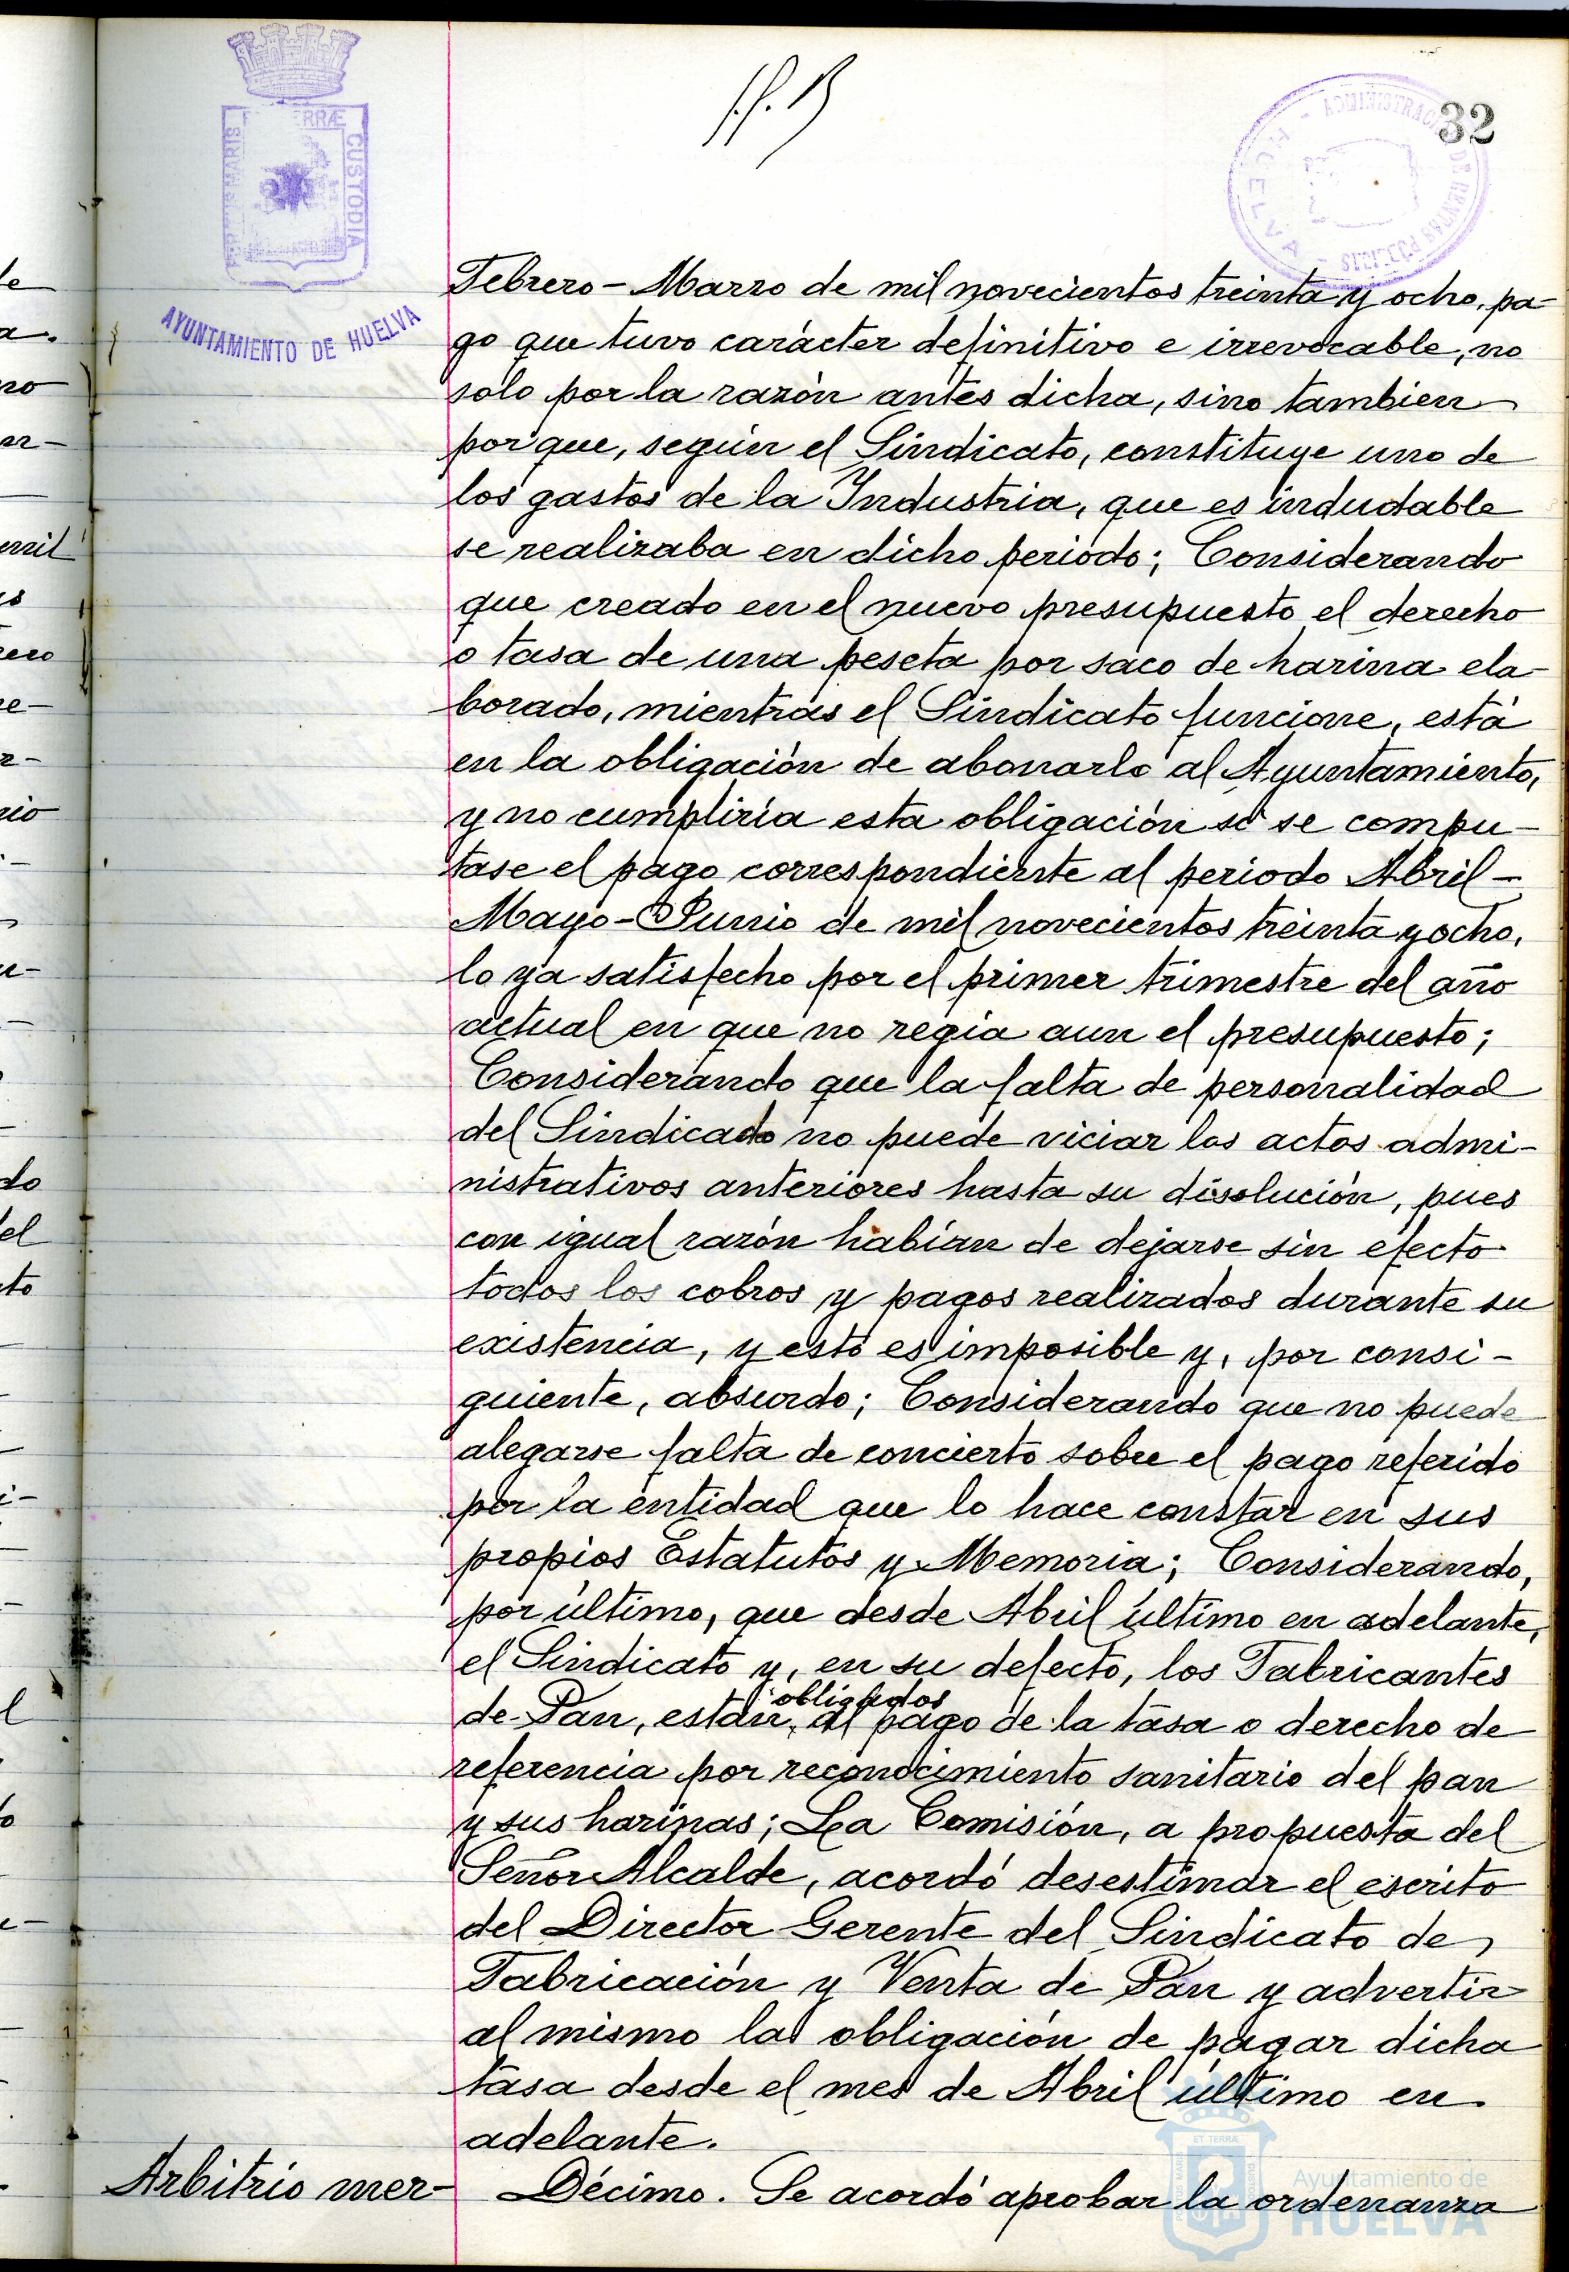 32
PORTUS MARIS
ET TERRÆ
CUSTODIA
AYUNTAMIENTO DE HUELVA
ADMINISTRACION DE RENTAS PUBLICAS
HUELVA
Febrero-Marzo de mil novecientos treinta y ocho, pa-
go que tuvo carácter definitivo e irrevocable, no
solo por la razón antes dicha, sino tambien
porque, según el Sindicato, constituye uno de
los gastos de la Industria, que es indudable
se realizaba en dicho periodo; Considerando
que creado en el nuevo presupuesto el derecho
o tasa de una peseta por saco de harina ela-
borado, mientras el Sindicato funcione, está
en la obligación de abonarlo al Ayuntamiento,
y no cumpliría esta obligación si se compu-
tase el pago correspondiente al periodo Abril-
Mayo-Junio de mil novecientos treinta y ocho,
lo ya satisfecho por el primer trimestre del año
actual en que no regía aun el presupuesto;
Considerando que la falta de personalidad
del Sindicado no puede viciar los actos admi-
nistrativos anteriores hasta su disolución, pues
con igual razón habían de dejarse sin efecto
todos los cobros y pagos realizados durante su
existencia, y esto es imposible y, por consi-
guiente, absurdo; Considerando que no puede
alegarse falta de concierto sobre el pago referido
por la entidad que lo hace constar en sus
propios Estatutos y Memoria; Considerando,
por último, que desde Abril último en adelante,
el Sindicato y, en su defecto, los Fabricantes
de Pan, están obligados al pago de la tasa o derecho de
referencia por reconocimiento sanitario del pan
y sus harinas; La Comisión, a propuesta del
Señor Alcalde, acordó desestimar el escrito
del Director Gerente del Sindicato de
Fabricación y Venta de Pan y advertir
al mismo la obligación de pagar dicha
tasa desde el mes de Abril último en
adelante.
Arbitrio mer-
Décimo. Se acordó aprobar la ordenanza
Ayuntamiento de
HUELVA